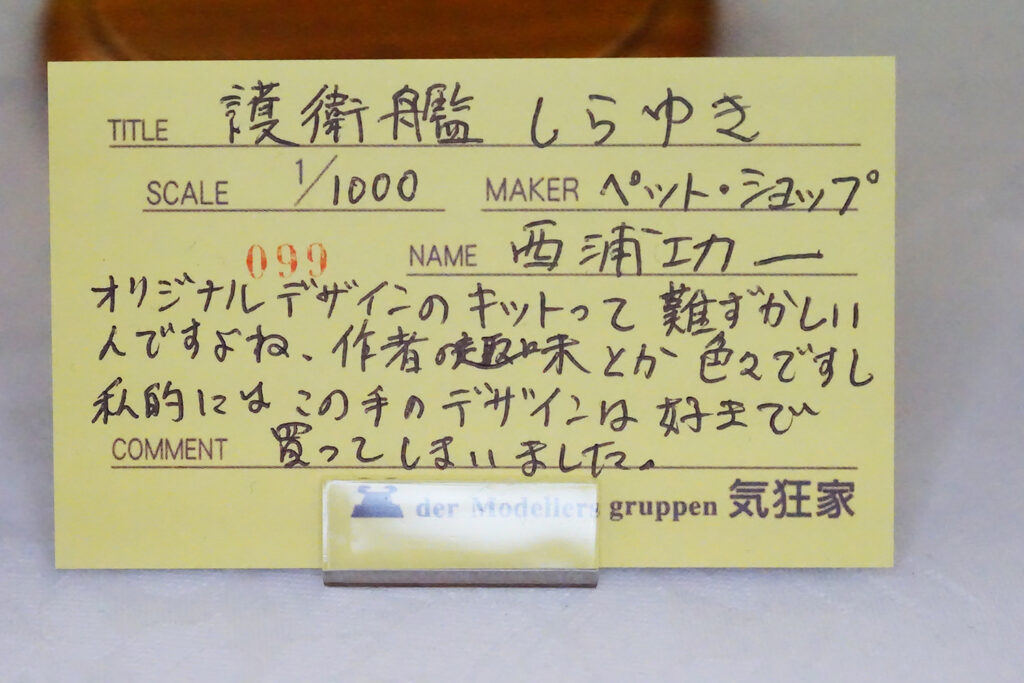 TITLE 護衛艦 しらゆき
SCALE 1/1000 MAKER ペット・ショップ
099 NAME 西浦功一
オリジナルデザインのキットって 難ずかしい
んですよね、作者の趣味とか 色々ですし
私的には この手のデザインは 好きで
COMMENT 買ってしまいました。
der Modellers gruppen 気狂家